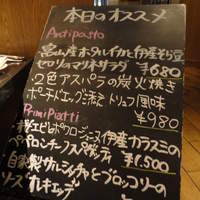 本日のオススメ
Antipasto
富山産ホタルイカと伊産そら豆
セロリのマリネサラダ ¥680
・2色アスパラの炭火焼き
ポーチドエッグ添え トリュフ風味
¥980
Primi Piatti
・桜エビとポワロジュース伊産カラスミの
ペペロンチーノスパゲッティ ¥1,500
・自家製サルシッチャとブロッコリーの
ソース オレキエッテ